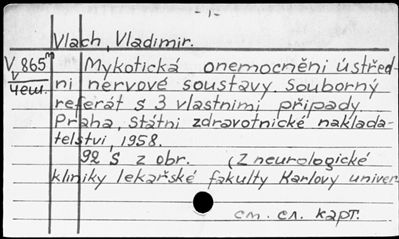 - 1 -
Vlach, Vladimir.
V 865 m Mykotická onemocněni ústřed-
чеш. ni nervové soustavy. Souborný
referát s 3 vlastnimi připady
Praha, Státni zdravotnické naklada-
telstvi, 1958.
92 S z obr. (Z neurologické
kliniky lekařské fakulty Karlovy univer
см. сл. карт.